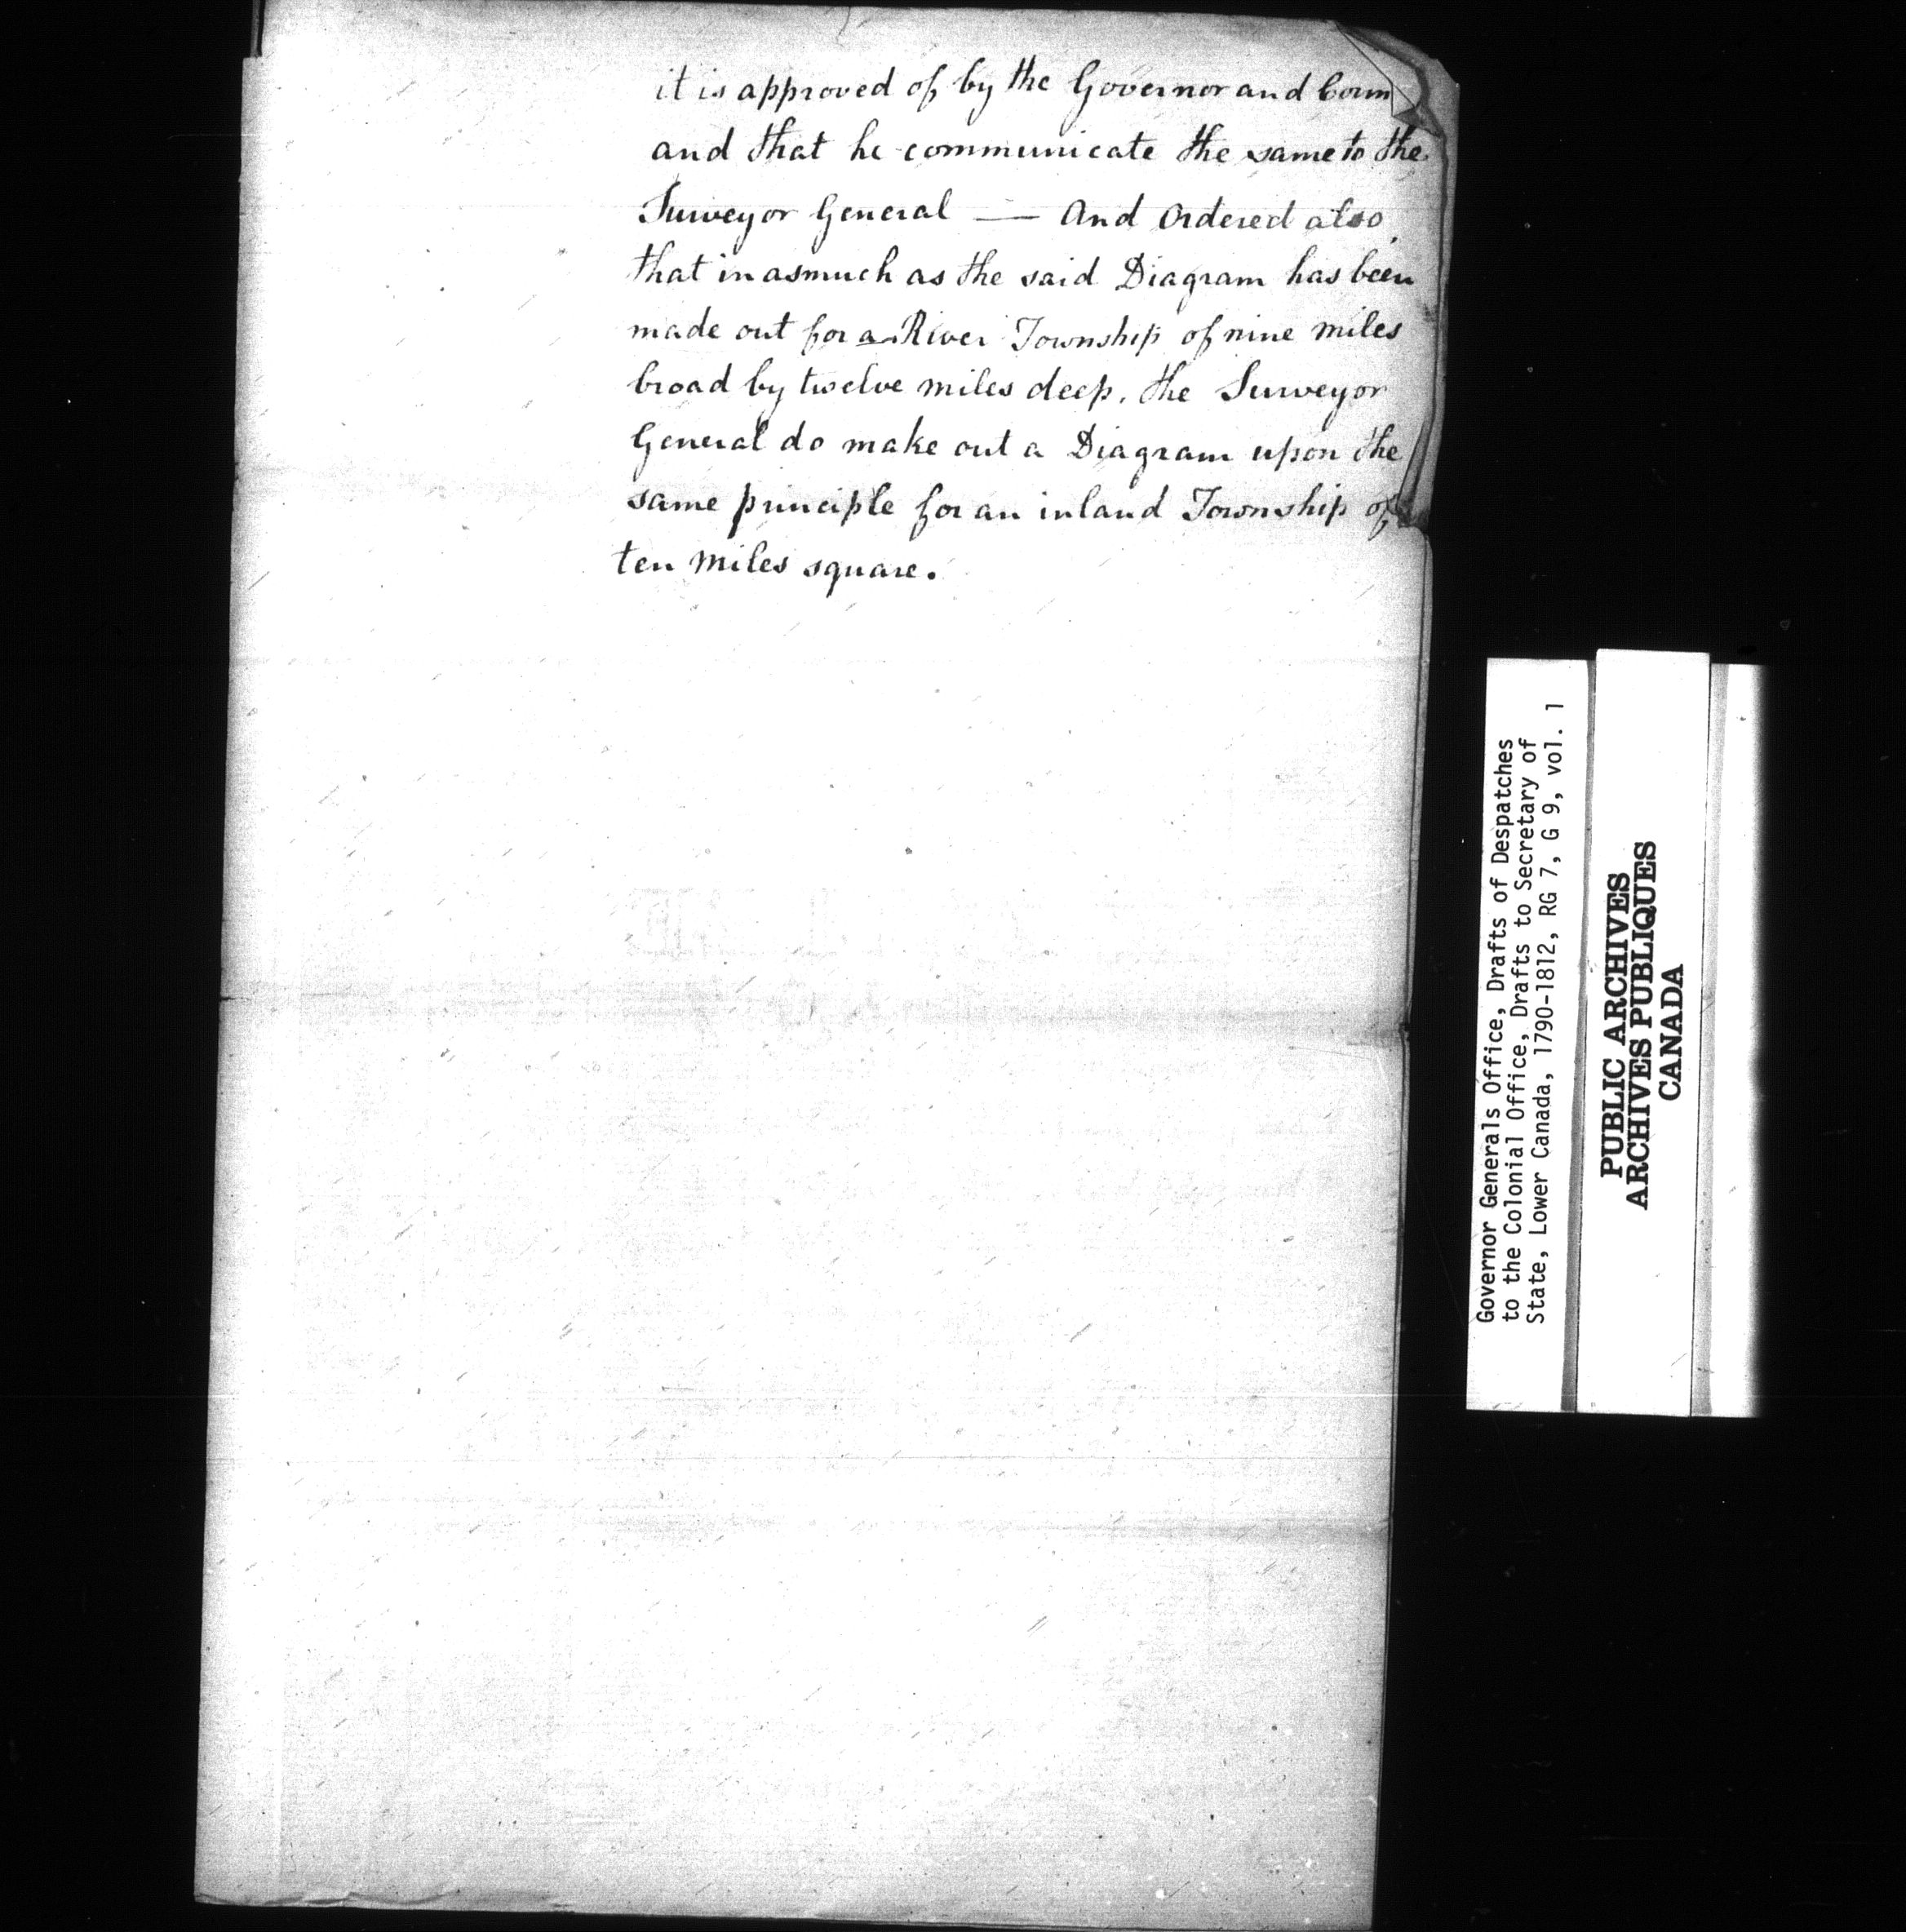 it is approved of by the Governor and Coun
and that he communicate the same to the
Surveyor General —— And Ordered also
that inasmuch as the said Diagram has been
made out for a River Township of nine miles
broad by twelve miles deep, the Surveyor
General do make out a Diagram upon the
same principle for an inland Township of
ten miles square.
Governor Generals Office, Drafts of Despatches
to the Colonial Office, Drafts to Secretary of
State, Lower Canada, 1790-1812, RG 7, G 9, vol. 1
PUBLIC ARCHIVES
ARCHIVES PUBLIQUES
CANADA